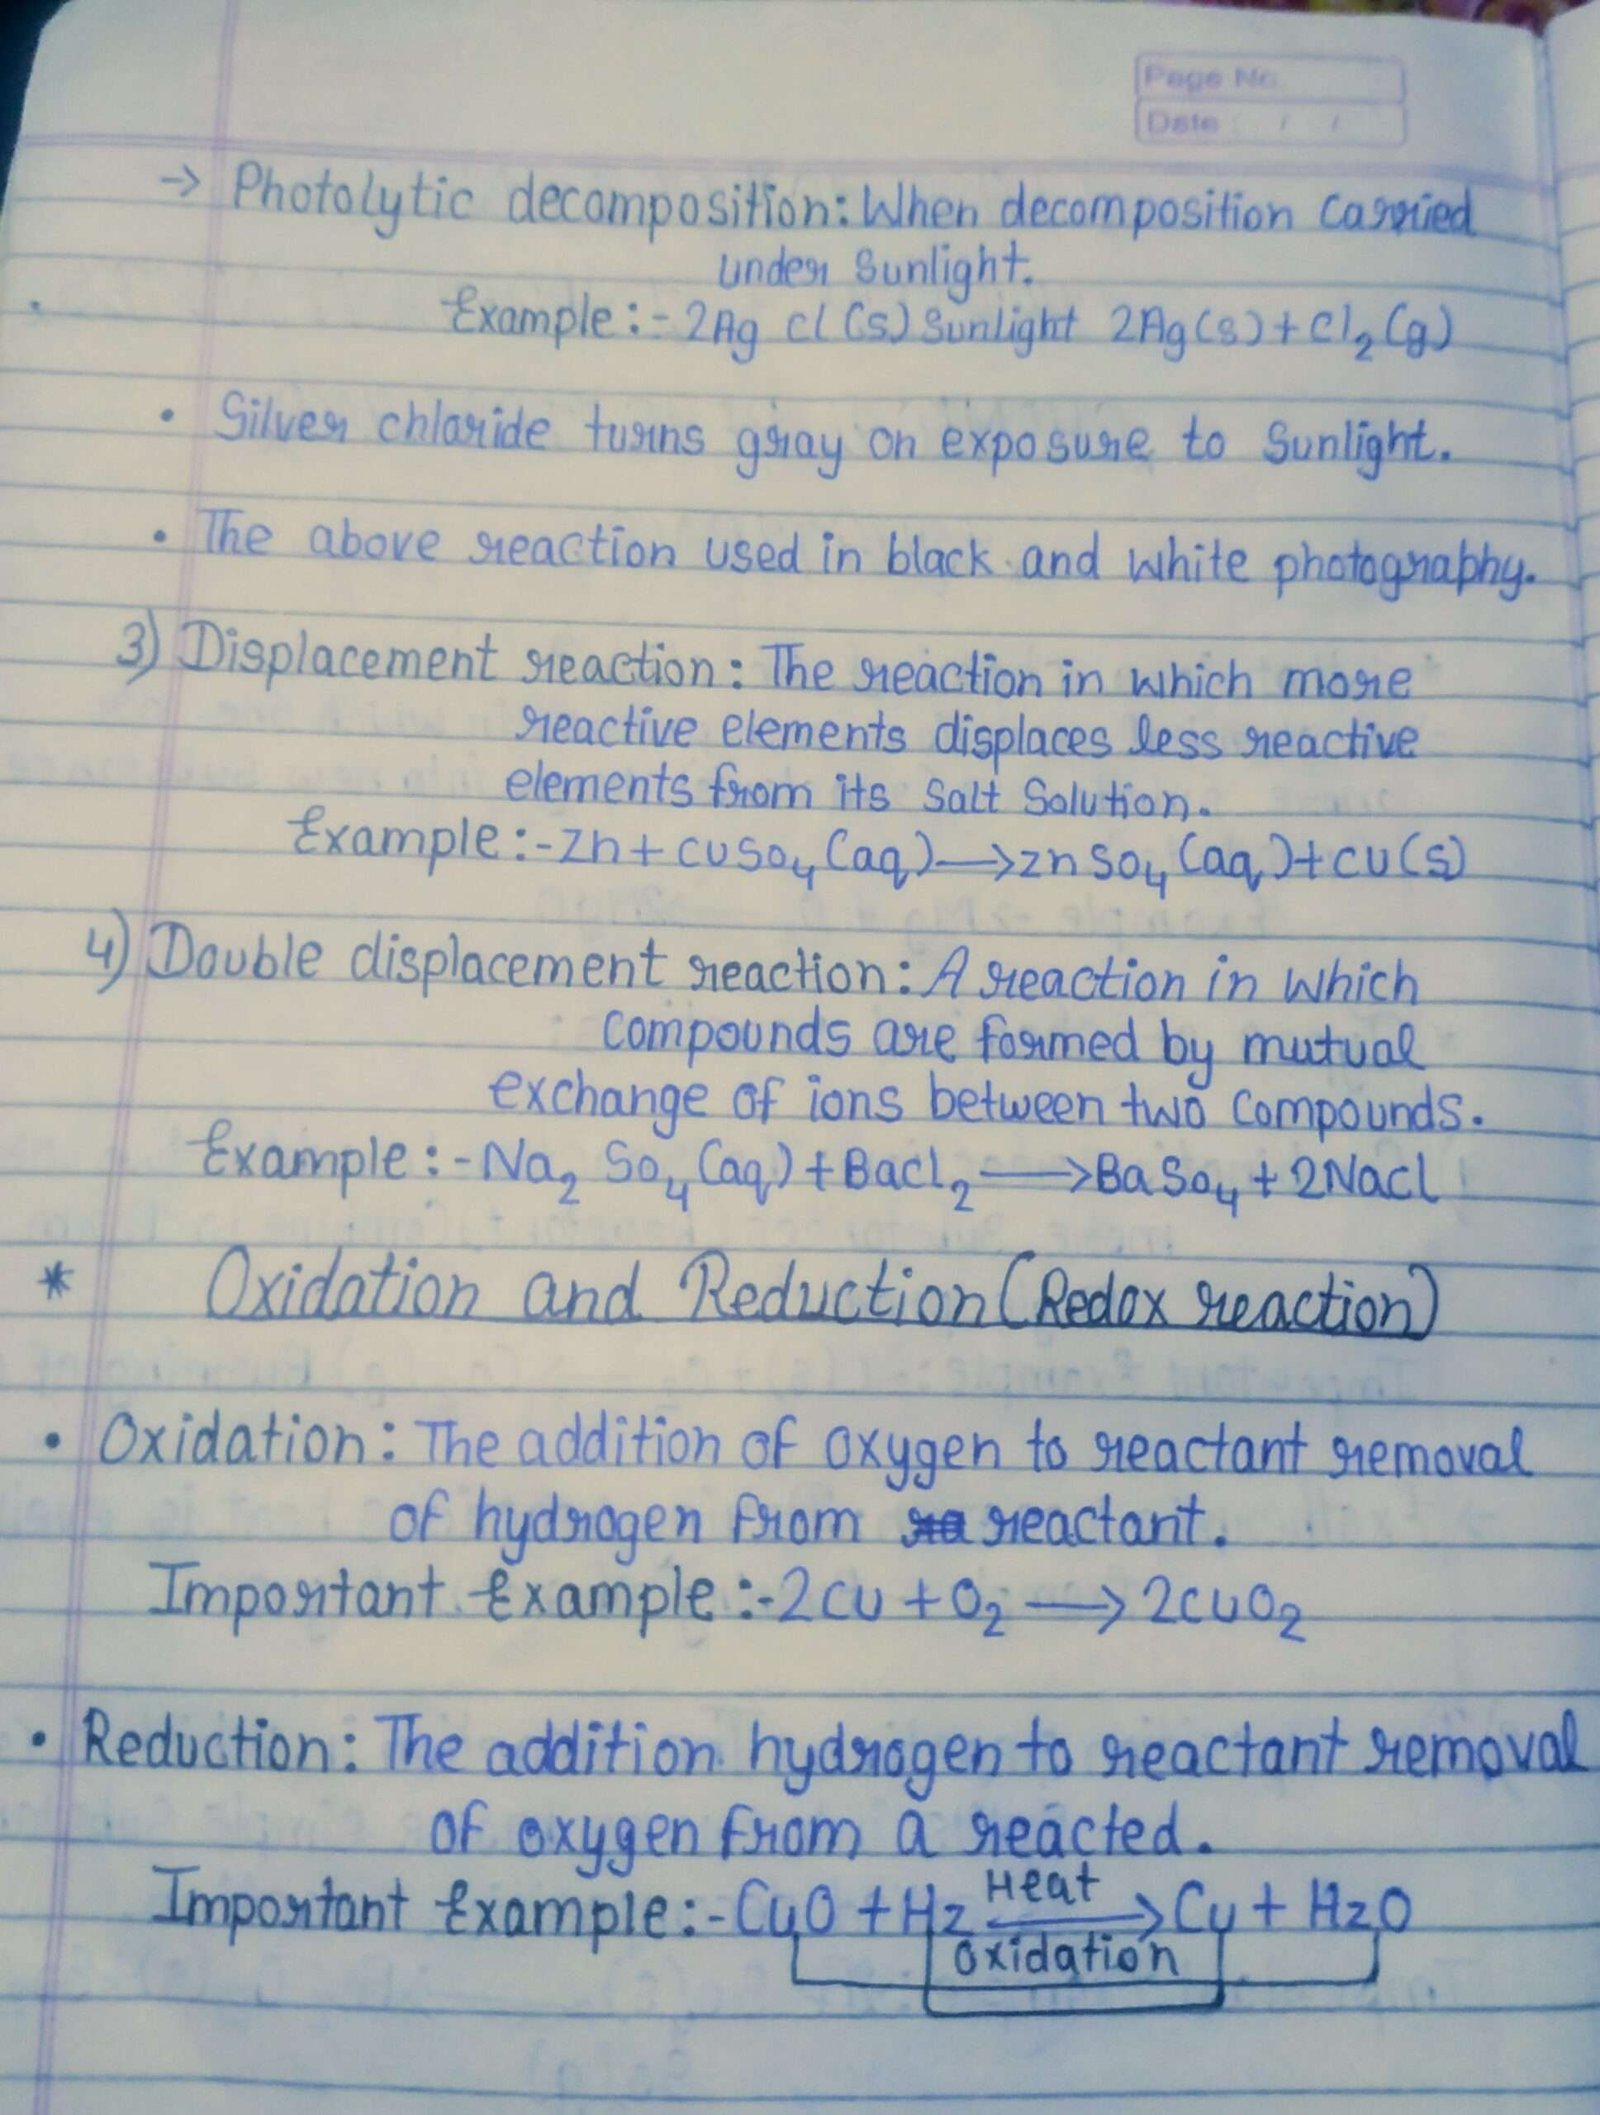 Page No.
Date / /
→ Photolytic decomposition: When decomposition carried
under Sunlight.
Example :- 2Ag Cl (s) Sunlight 2Ag(s) + Cl₂ (g)
• Silver chloride turns gray on exposure to Sunlight.
• The above reaction used in black and white photography.
3) Displacement reaction: The reaction in which more
reactive elements displaces less reactive
elements from its Salt Solution.
Example :- Zn + CuSo₄ (aq) → znSo₄ (aq) + Cu(s)
4) Double displacement reaction: A reaction in which
Compounds are formed by mutual
exchange of ions between two Compounds.
Example :- Na₂ So₄ (aq) + BaCl₂ → BaSo₄ + 2NaCl
* Oxidation and Reduction (Redox reaction)
• Oxidation: The addition of oxygen to reactant removal
of hydrogen from reactant.
Important Example :- 2Cu + O₂ → 2CuO₂
• Reduction: The addition hydrogen to reactant removal
of oxygen from a reacted.
Heat
Important Example :- CuO + H₂ → Cu + H₂O
Oxidation